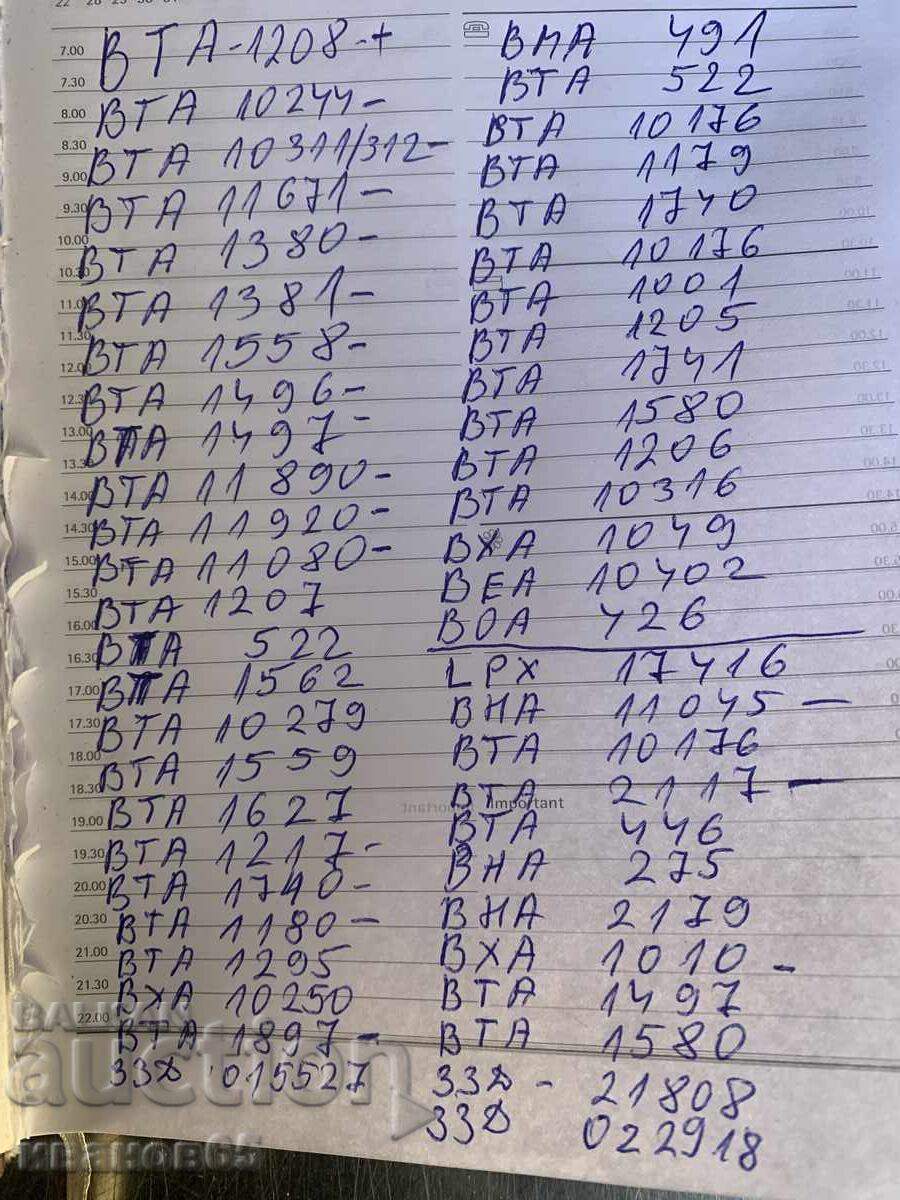 7.00 ВТА-1208-+
7.30
8.00 ВТА 10244-
8.30 ВТА 10311/312-
9.00
9.30 ВТА 11671-
10.00 ВТА 1380-
10.30
11.00 ВТА 1381-
11.30 ВТА 1558-
12.00
12.30 ВТА 1496-
13.00 ВТА 1497-
13.30
14.00 ВТА 11890-
14.30 ВТА 11920-
15.00 ВТА 11080-
15.30 ВТА 1207
16.00
16.30 ВТА 522
17.00 ВТА 1562
17.30 ВТА 10279
18.00
18.30 ВТА 1559
19.00 ВТА 1627
19.30 ВТА 1217-
20.00 ВТА 1740-
20.30 ВТА 1180-
21.00 ВТА 1295
21.30 ВХА 10250
22.00 ВТА 1897-
ЗЗД 015527
ВНА 491
ВТА 522
ВТА 10176
ВТА 1179
ВТА 1740
ВТА 10176
ВТА 1001
ВТА 1205
ВТА 1741
ВТА 1580
ВТА 1206
ВТА 10316
ВХА 1049
ВЕА 10402
ВОА 426
LPX 17416
ВНА 11045 -
ВТА 10176
ВТА 2117-
Important
ВТА 446
ВНА 275
ВНА 2179
ВХА 1010 -
ВТА 1497
ВТА 1580
ЗЗД - 21808
ЗЗД 022918
auction
иванов65